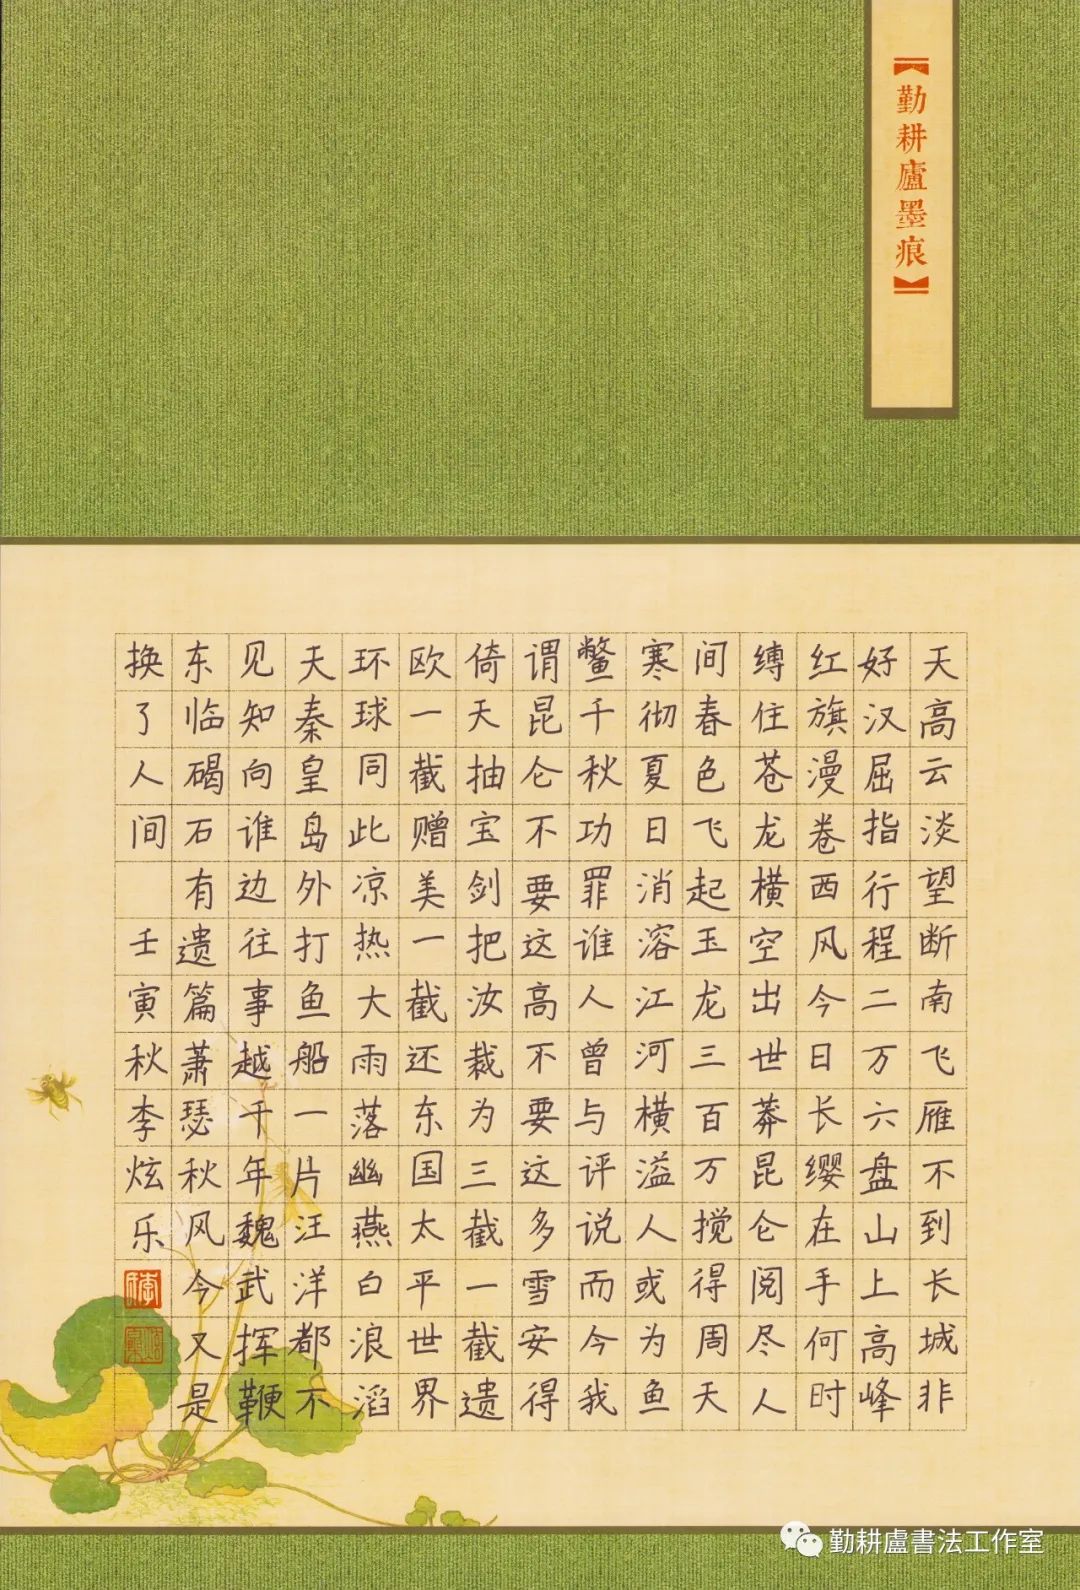 【勤耕廬墨痕】
天高云淡望断南飞雁不到长城非
好汉屈指行程二万六盘山上高峰
红旗漫卷西风今日长缨在手何时
缚住苍龙横空出世莽昆仑阅尽人
间春色飞起玉龙三百万搅得周天
寒彻夏日消溶江河横溢人或为鱼
鳖千秋功罪谁人曾与评说而今我
谓昆仑不要这高不要这多雪安得
倚天抽宝剑把汝裁为三截一截遗
欧一截赠美一截还东国太平世界
环球同此凉热大雨落幽燕白浪滔
天秦皇岛外打鱼船一片汪洋都不
见知向谁边往事越千年魏武挥鞭
东临碣石有遗篇萧瑟秋风今又是
换了人间 壬寅秋李炫乐
勤耕盧書法工作室